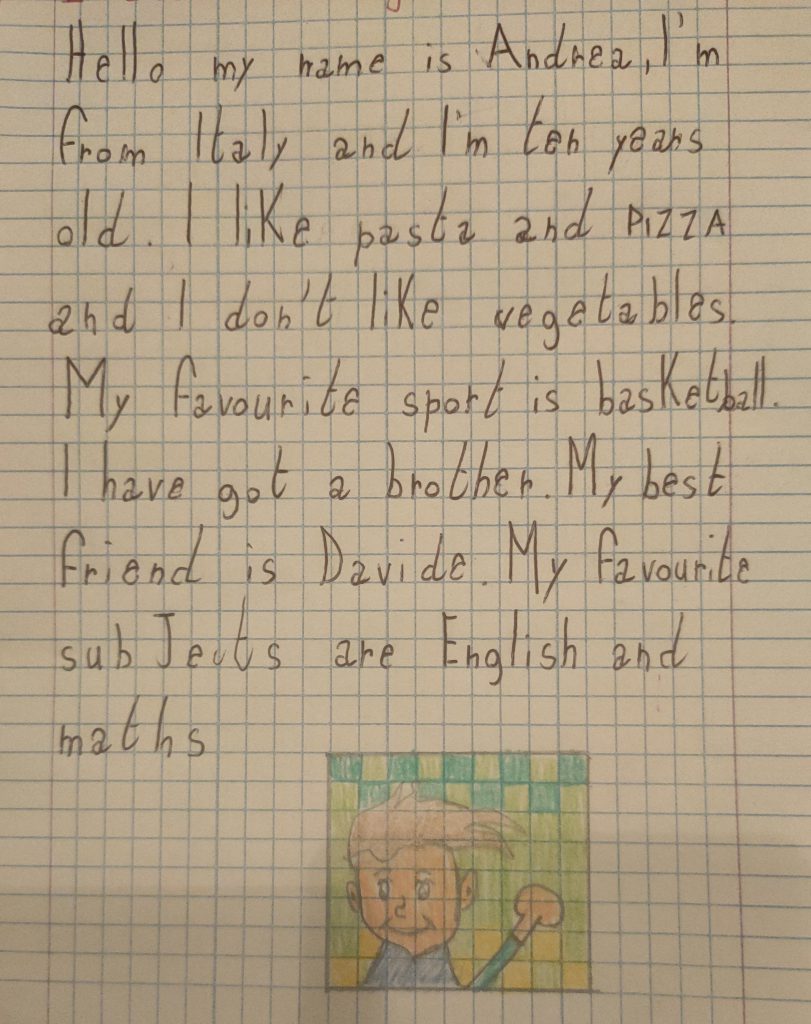 Hello my name is Andrea, I'm
from Italy and I'm ten years
old. I like pasta and PiZZA
and I don't like vegetables.
My favourite sport is basketball.
I have got a brother. My best
friend is Davide. My favourite
sub Jects are English and
maths